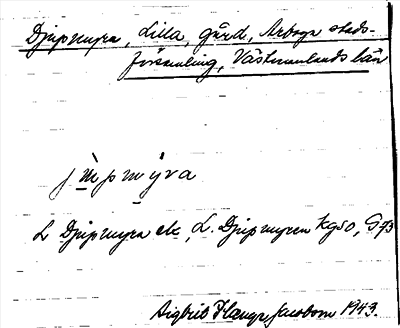 Djupmyra, Lilla, gård, Arboga stads-
församling, Västmanlands län
j m̀p m ýra
L Djupmyra ek, L. Djupmyren kg50, G93
Sigbrit Jacobson 1943.